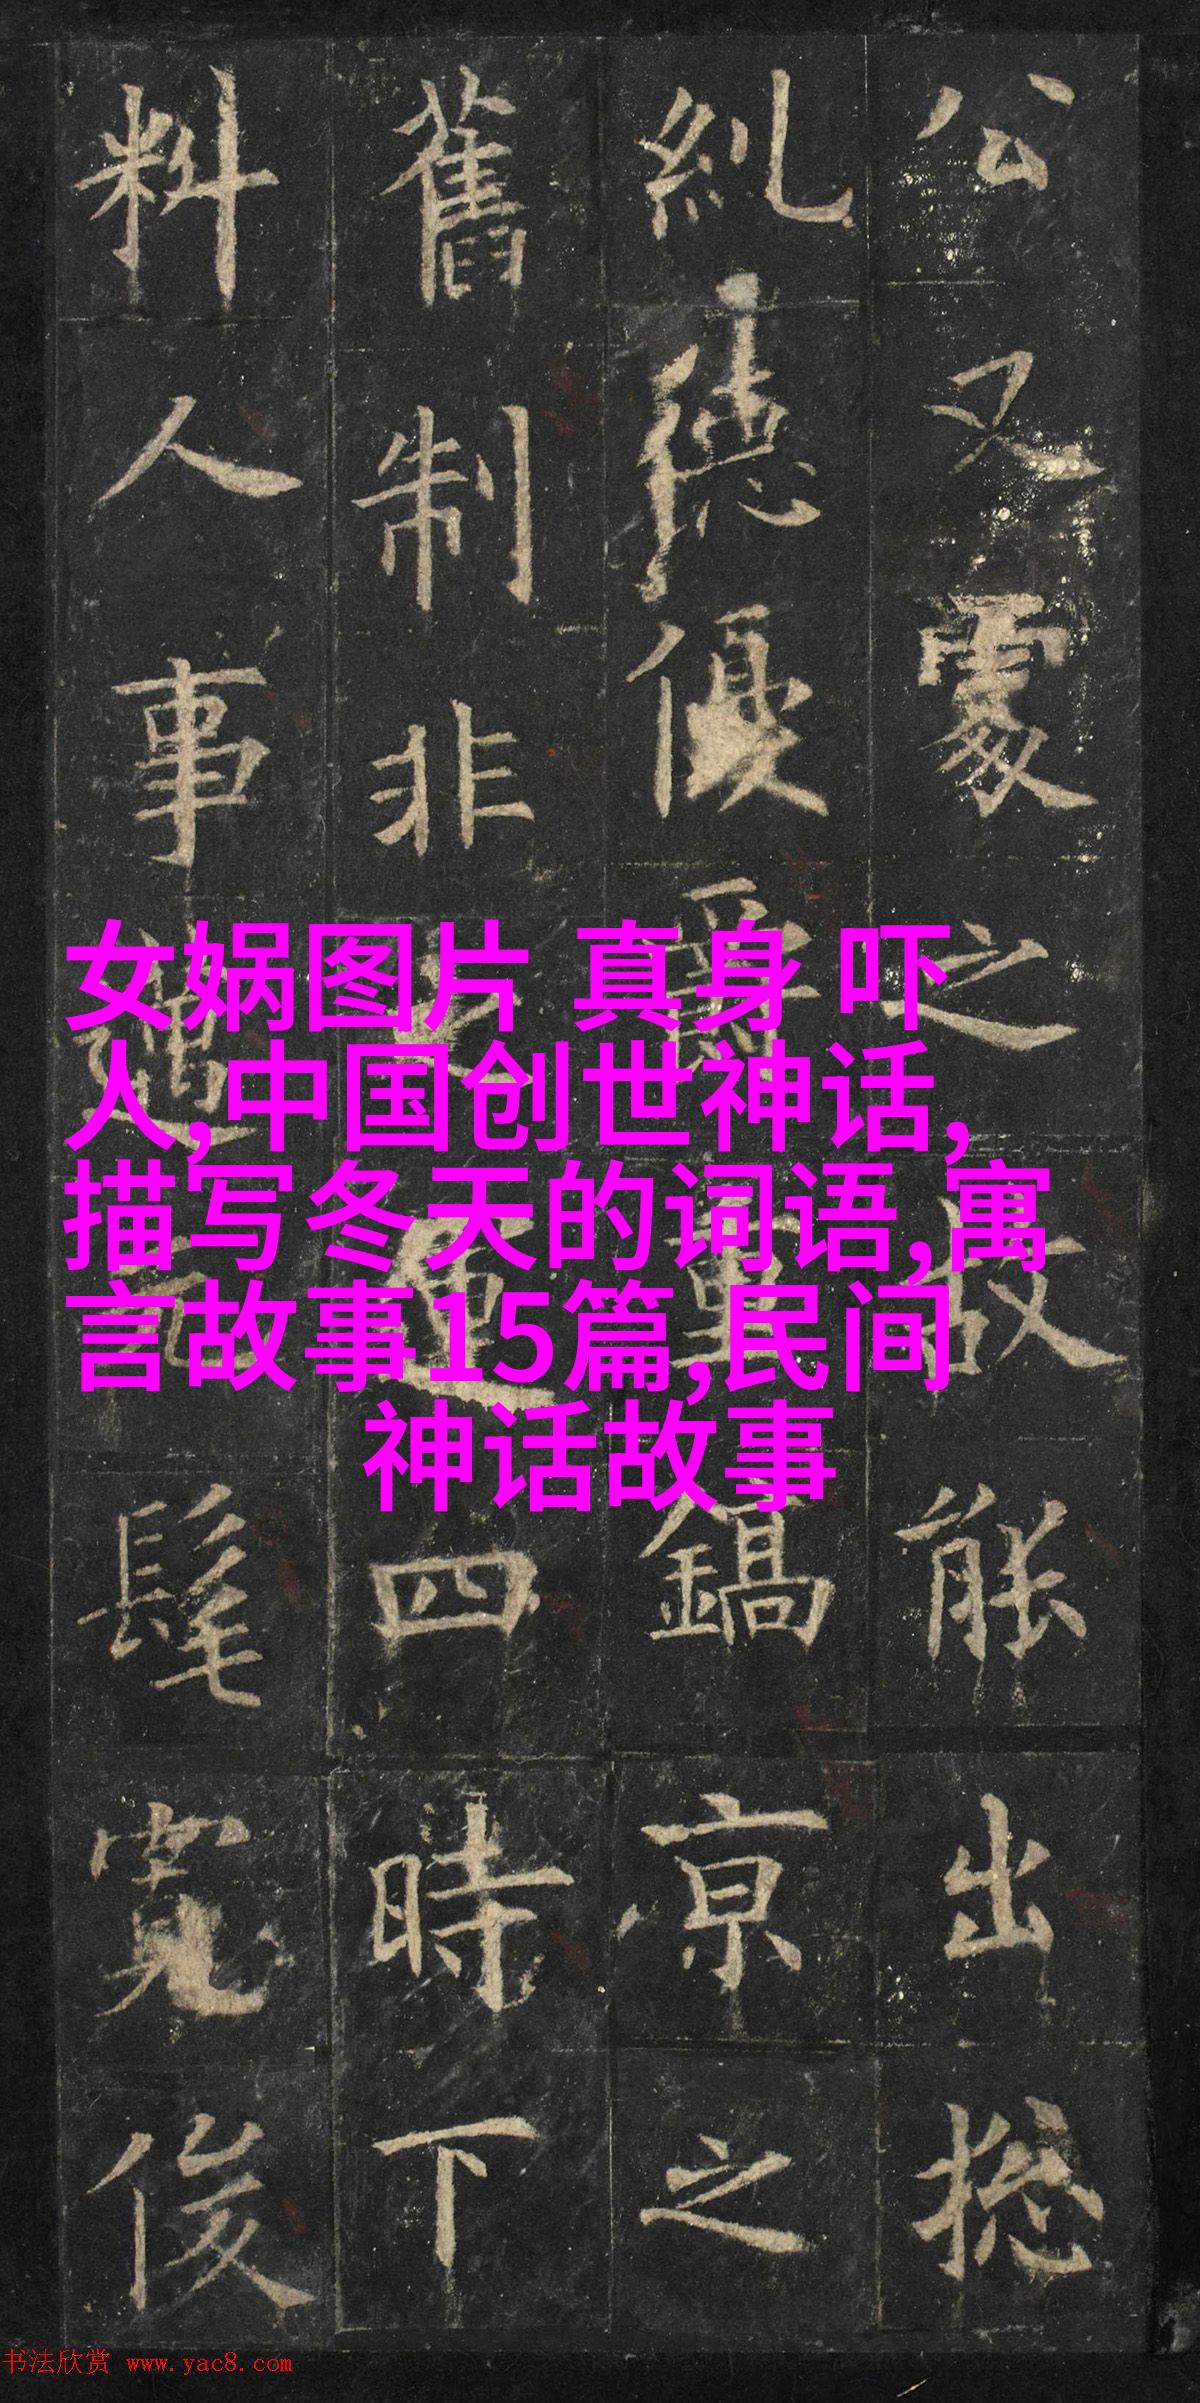 公又震之故能出揔
紏德優爵重鎬京之
舊制非運四時下
料人事遹髦寛俊
女娲图片 真身 吓
人,中国创世神话,
描写冬天的词语,寓
言故事15篇,民间
神话故事
书法欣赏 www.yac8.com